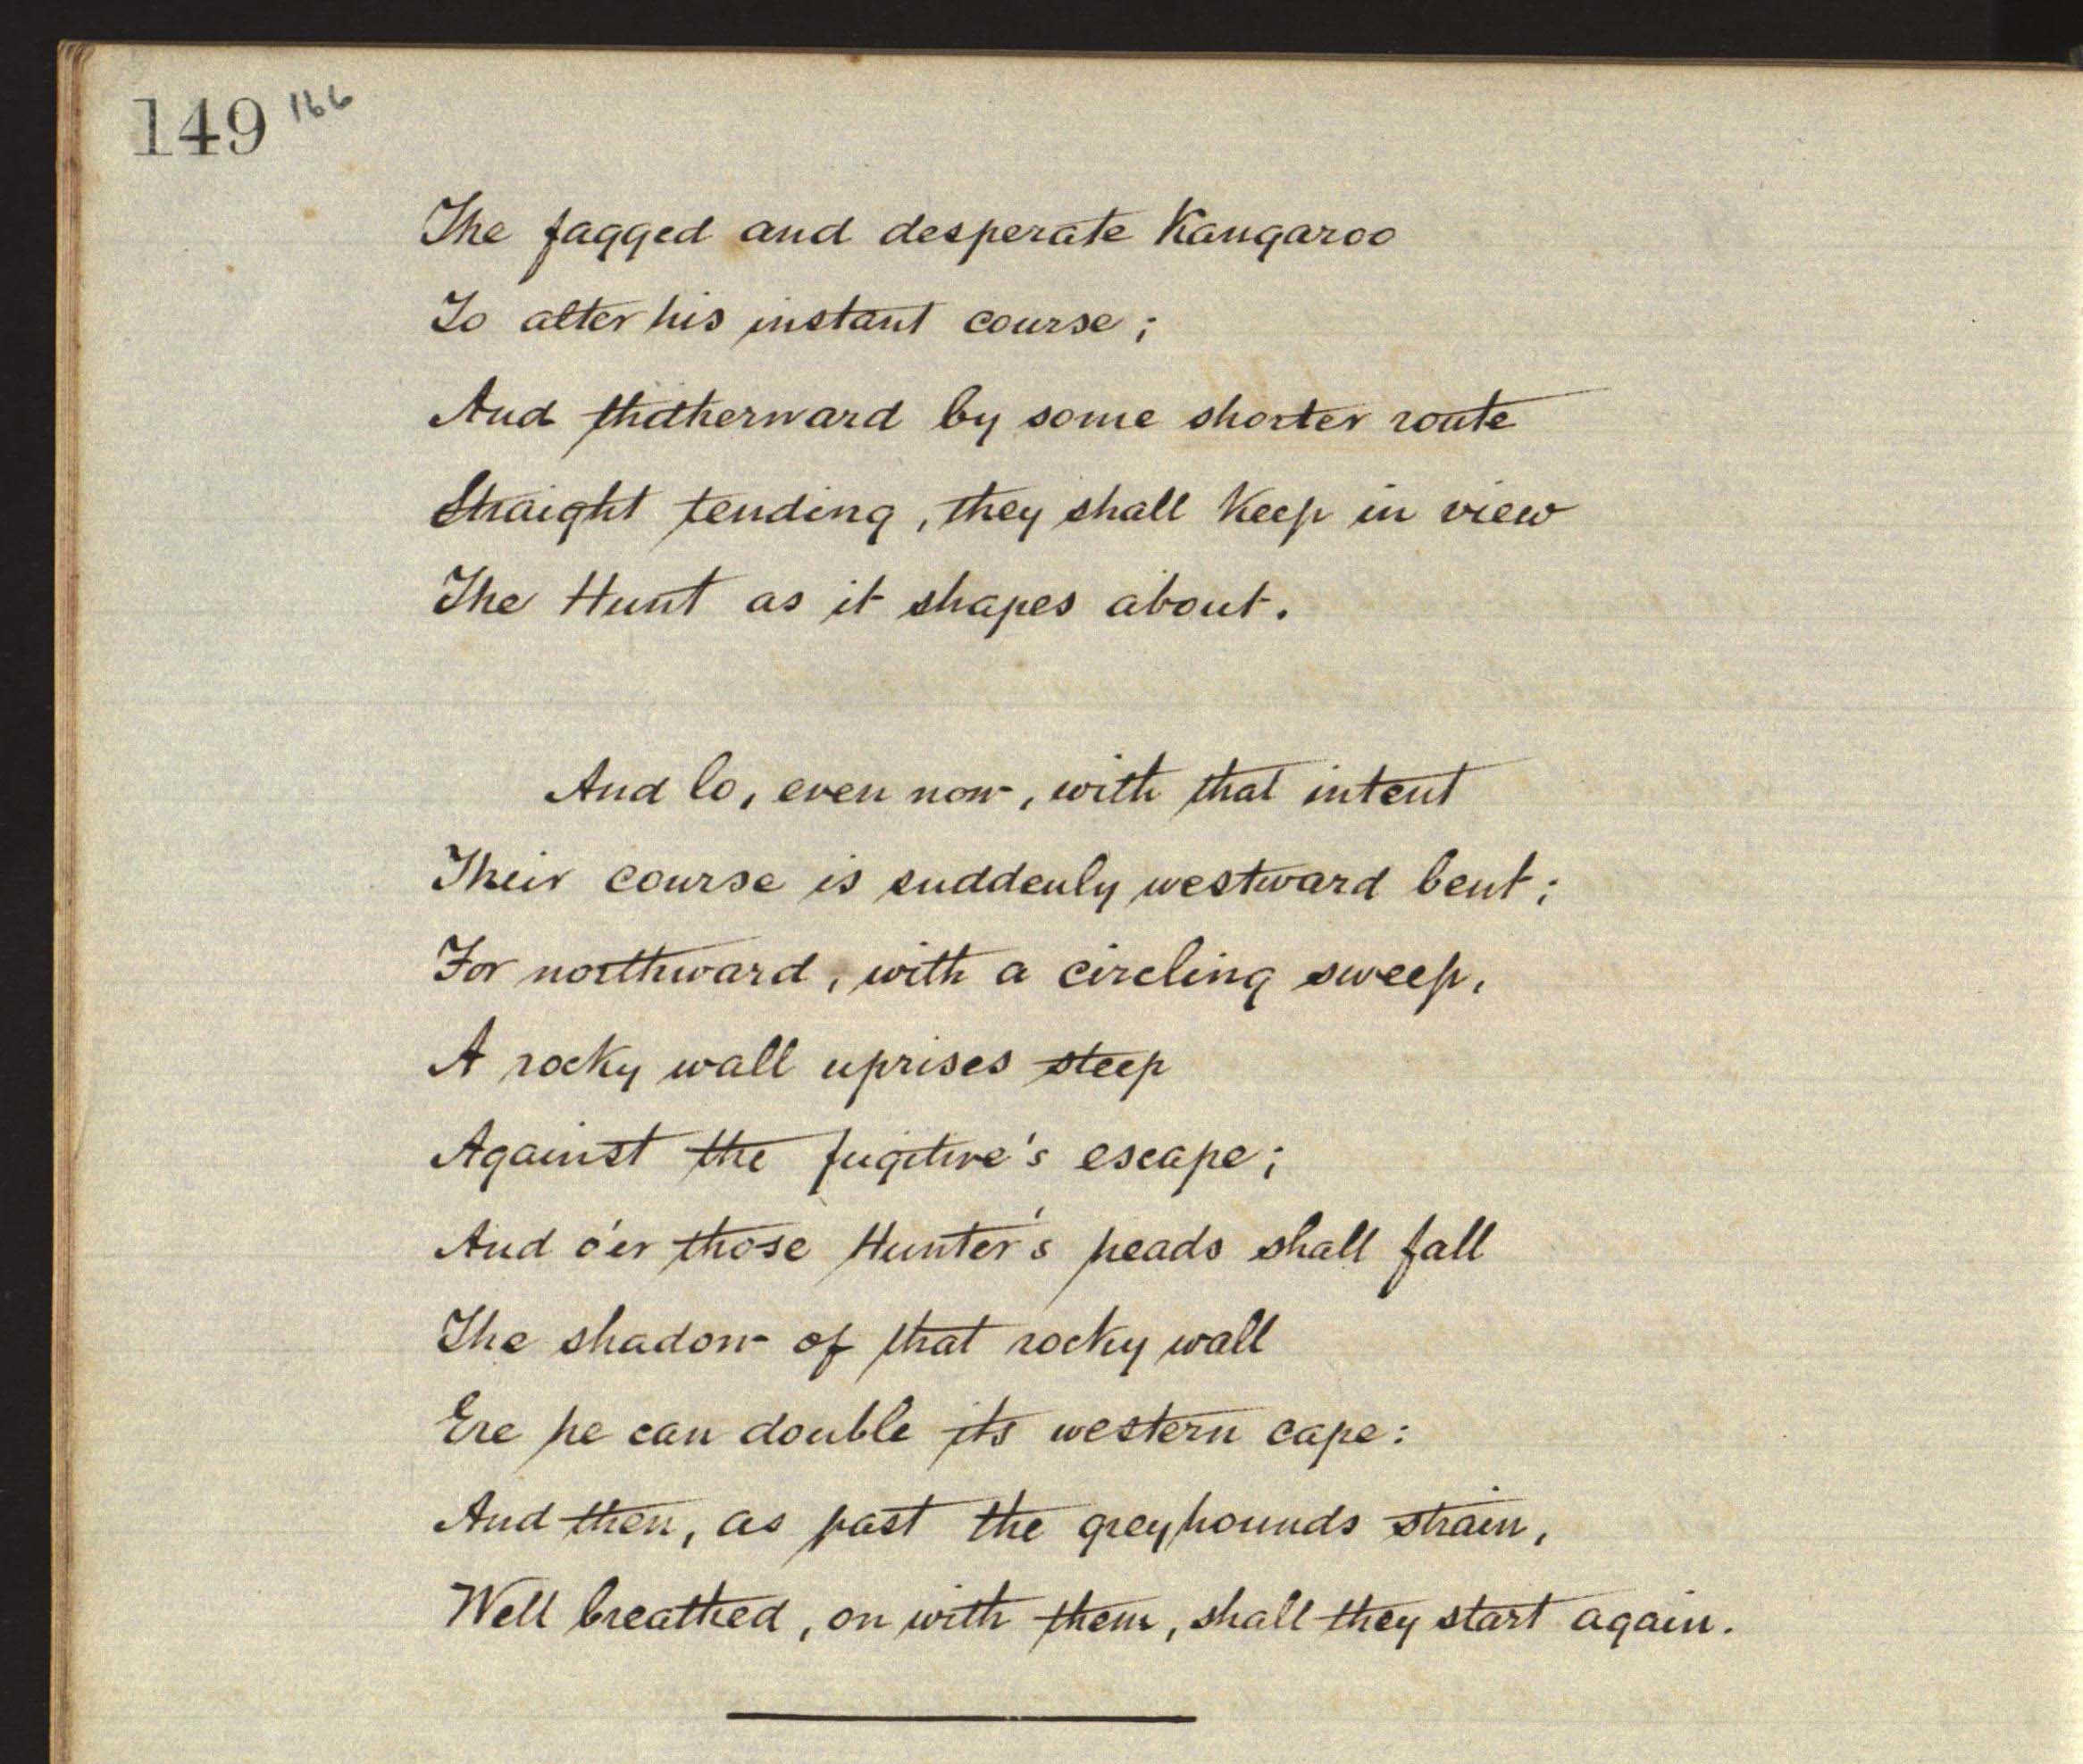 149 166
The fagged and desperate Kangaroo
To alter his instant course;
And thitherward by some shorter route
Straight tending, they shall keep in view
The Hunt as it shapes about.
And lo, even now, with that intent
Their course is suddenly westward bent;
For northward, with a circling sweep,
A rocky wall uprises steep
Against the fugitive's escape;
And o'er those Hunter's heads shall fall
The shadow of that rocky wall
Ere he can double its western cape:
And then, as past the greyhounds strain,
Well breathed, on with them, shall they start again.